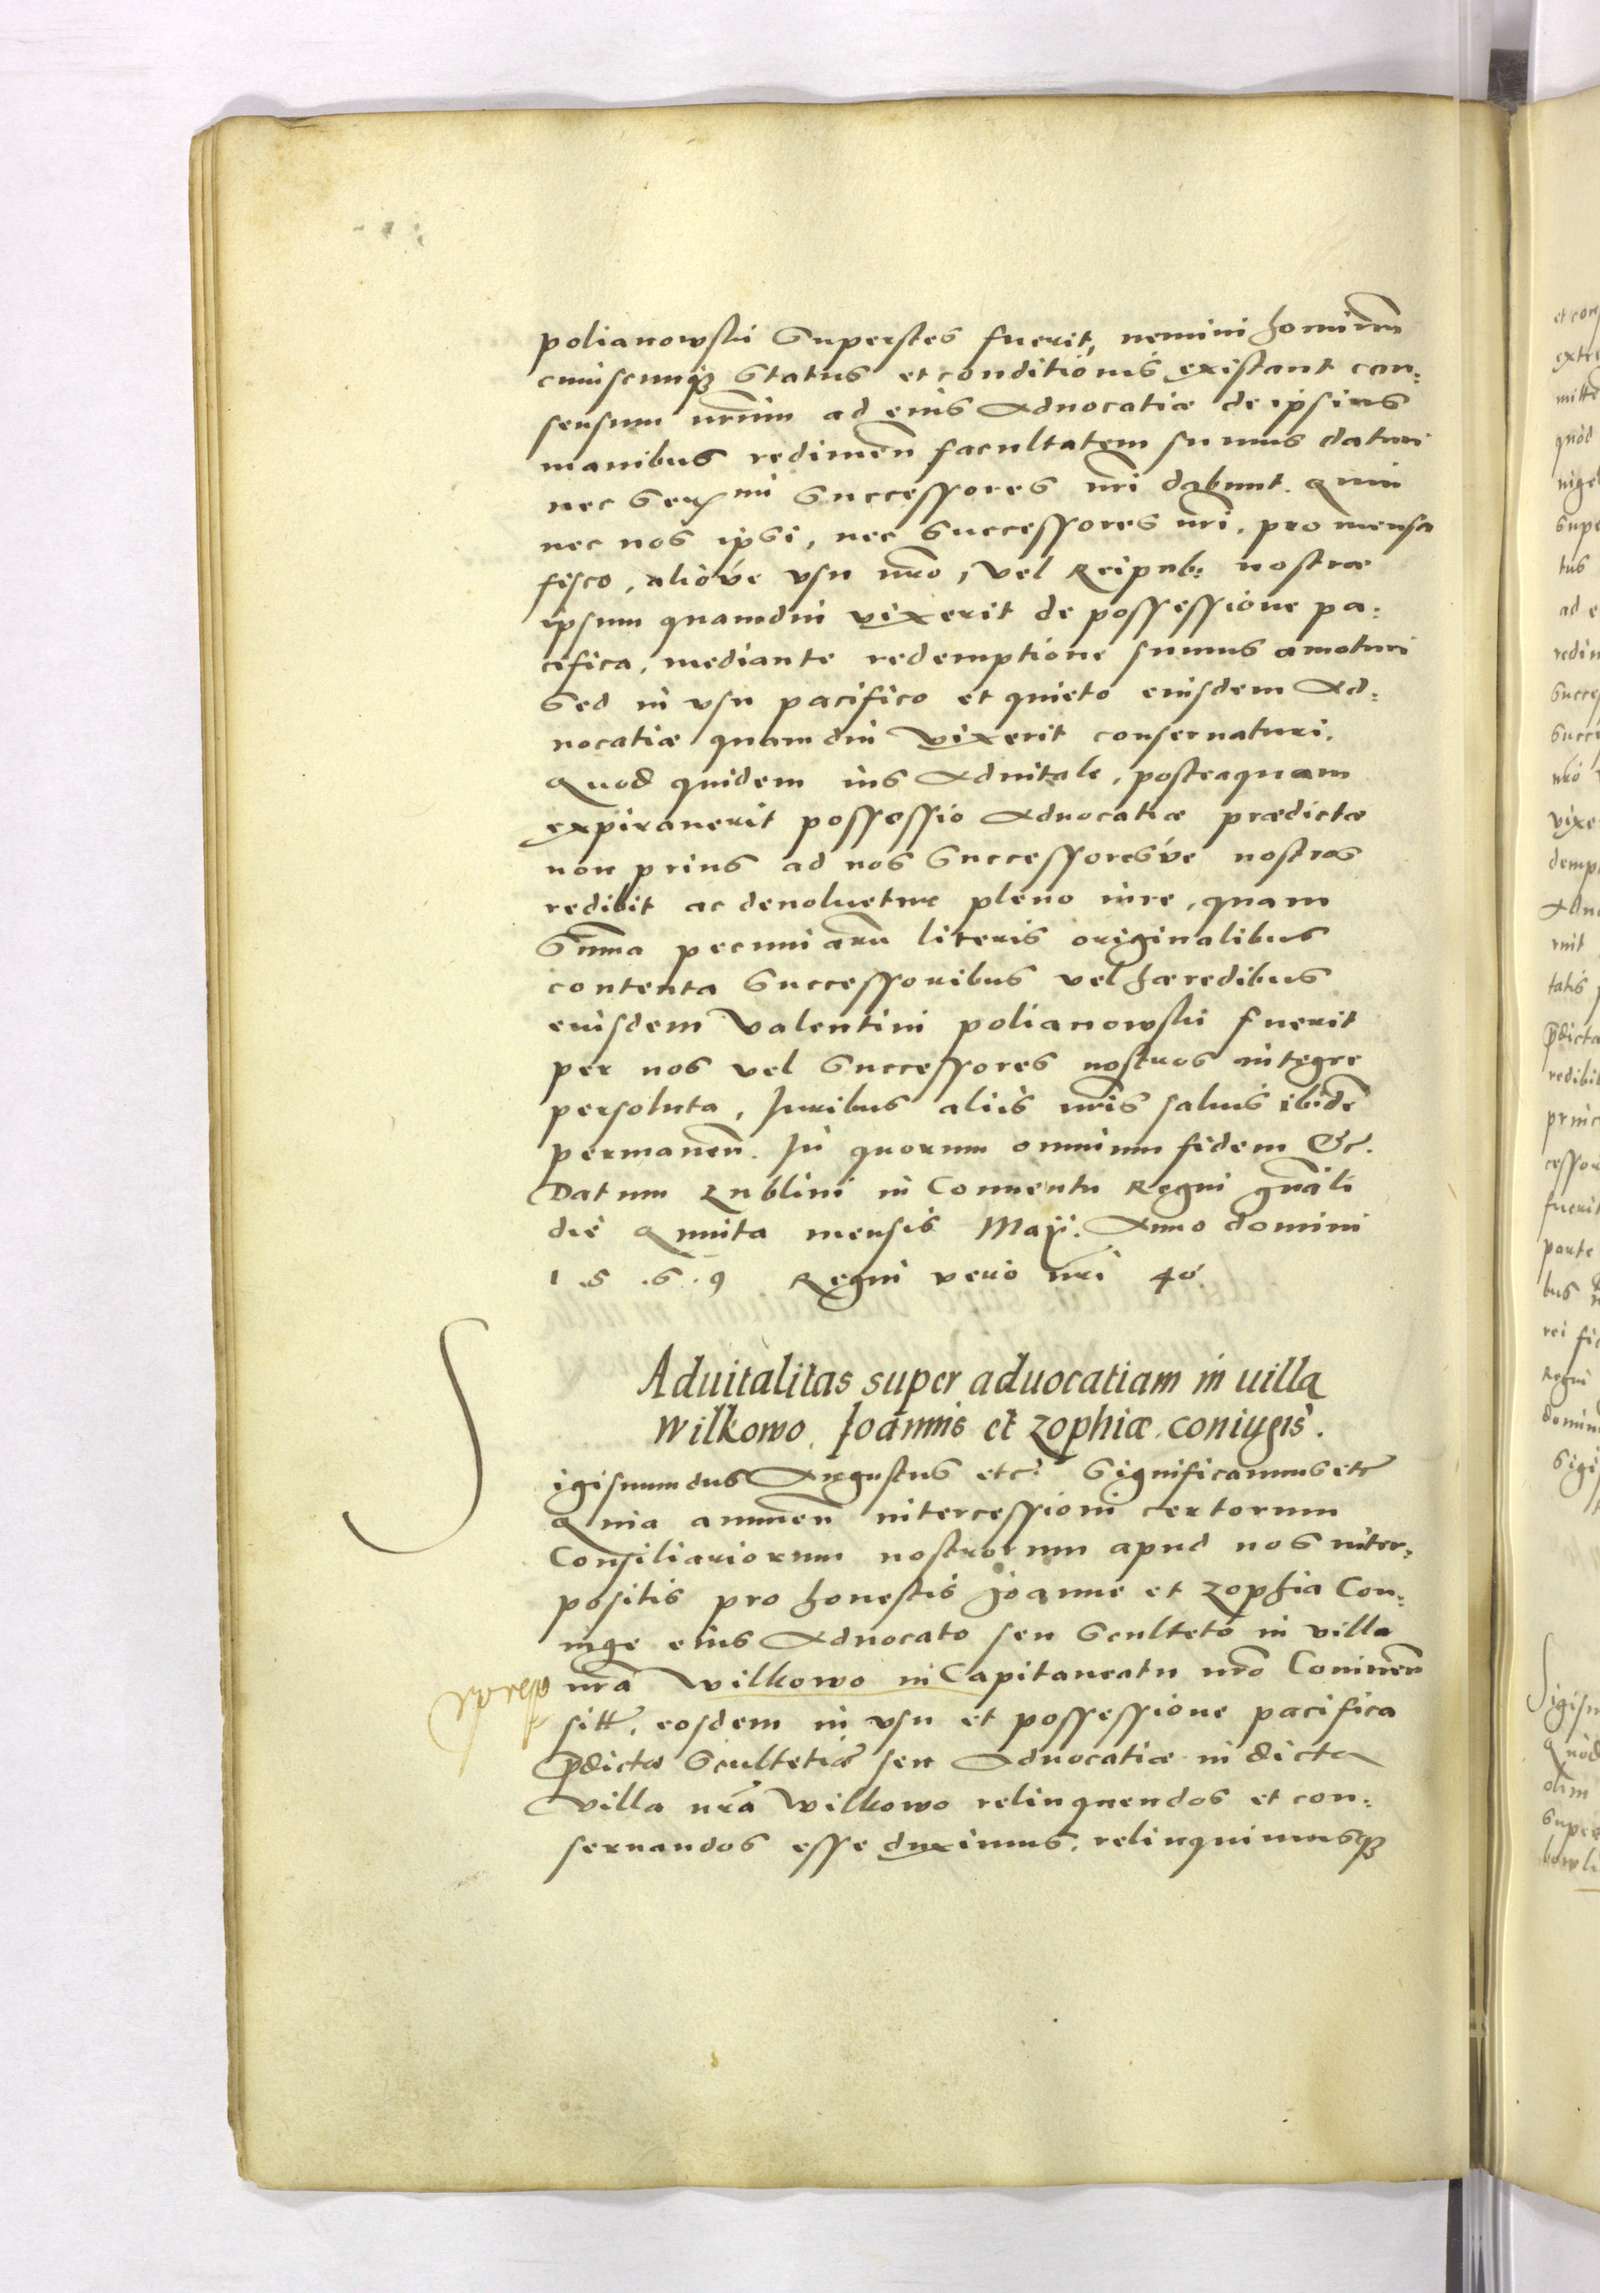 polianowski Superstes fuerit, nemini hominum
cuiuscunq; Status et conditionis existant con:
sensum nrum ad eius Aduocatiæ de ipsius
manibus redimen facultatem sumus daturi
nec Sermi Successores nri dabunt. Quin
nec nos ipsi, nec Successores nri, pro mensa
fisco, alióve vsu nro, vel Reipub: nostræ
ipsum quamdiu vixerit de possessione pa:
cifica, mediante redemptione sumus amoturi
Sed in vsu pacifico et quieto eiusdem Ad:
uocatiæ quamdiu vixerit conseruaturi.
Quod quidem ius Aduitale, posteaquam
expirauerit possessio Aduocatiæ prædictæ
non prius ad nos Successoresve nostros
redibit ac deuoluetur pleno iure, quam
Suma pecuniaru literis originalibus
contenta Successoribus vel hæredibus
eiusdem Valentini polianowski fuerit
per nos vel Successores nostros integre
persoluta, Iuribus aliis nris saluis ibidē
permanen. In quorum omnium fidem &c.
Datum Lublini in Conuentu Regni gnali
die Quinta mensis Maji. Anno domini
1.5.6.9 Regni vero nri 40
Aduitalitas super aduocatiam in uilla
Wilkowo, Joannis et Zophiæ coniugis.
Sigismundus Augustus etc: Significamus etc
Quia annuen intercessioni certorum
Consiliariorum nostrorum apud nos inter:
positis pro honestis Joanne et Zophia Con:
iuge eius Aduocato seu Sculteto in villa
nra Wilkowo in Capitaneatu nro Coninen
sitt, eosdem in vsu et possessione pacifica
pdictæ Scultetiæ seu Aduocatiæ in dicta
villa nra Wilkowo relinquendos et con:
seruandos esse duximus, relinquimusq;